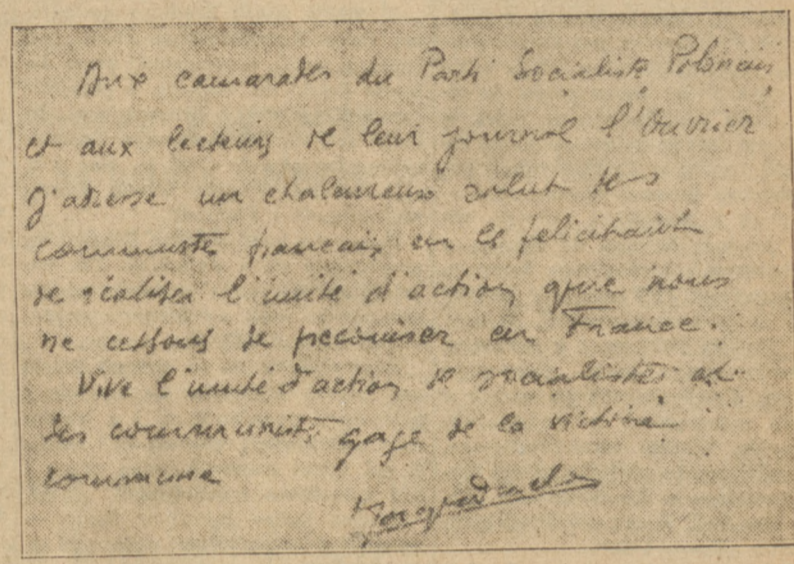 Aux camarades du Parti Socialiste Polonais
et aux lecteurs de leur journal l'Ouvrier
j'adresse un chaleureux salut des
communistes français en les felicitant
de réaliser l'unité d'action que nous
ne cessons de preconiser en France.
Vive l'unité d'action de socialistes et
des communistes gage de la victoire
commune